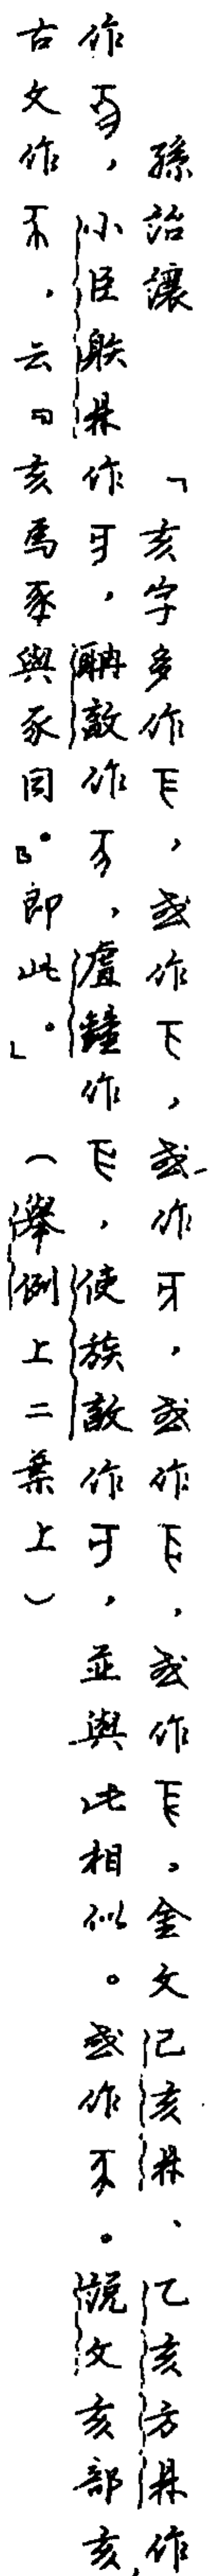 孫詒讓　「亥字多作，或作，或作，或作，或作。金文己亥鼎、乙亥方鼎作
作，小臣䠶鼎作，聃敦作，虘鐘作，使族敦作，並與此相似。或作。說文亥部亥
古文作，云『亥爲豕與豕同』。即此。」（舉例上二葉上）